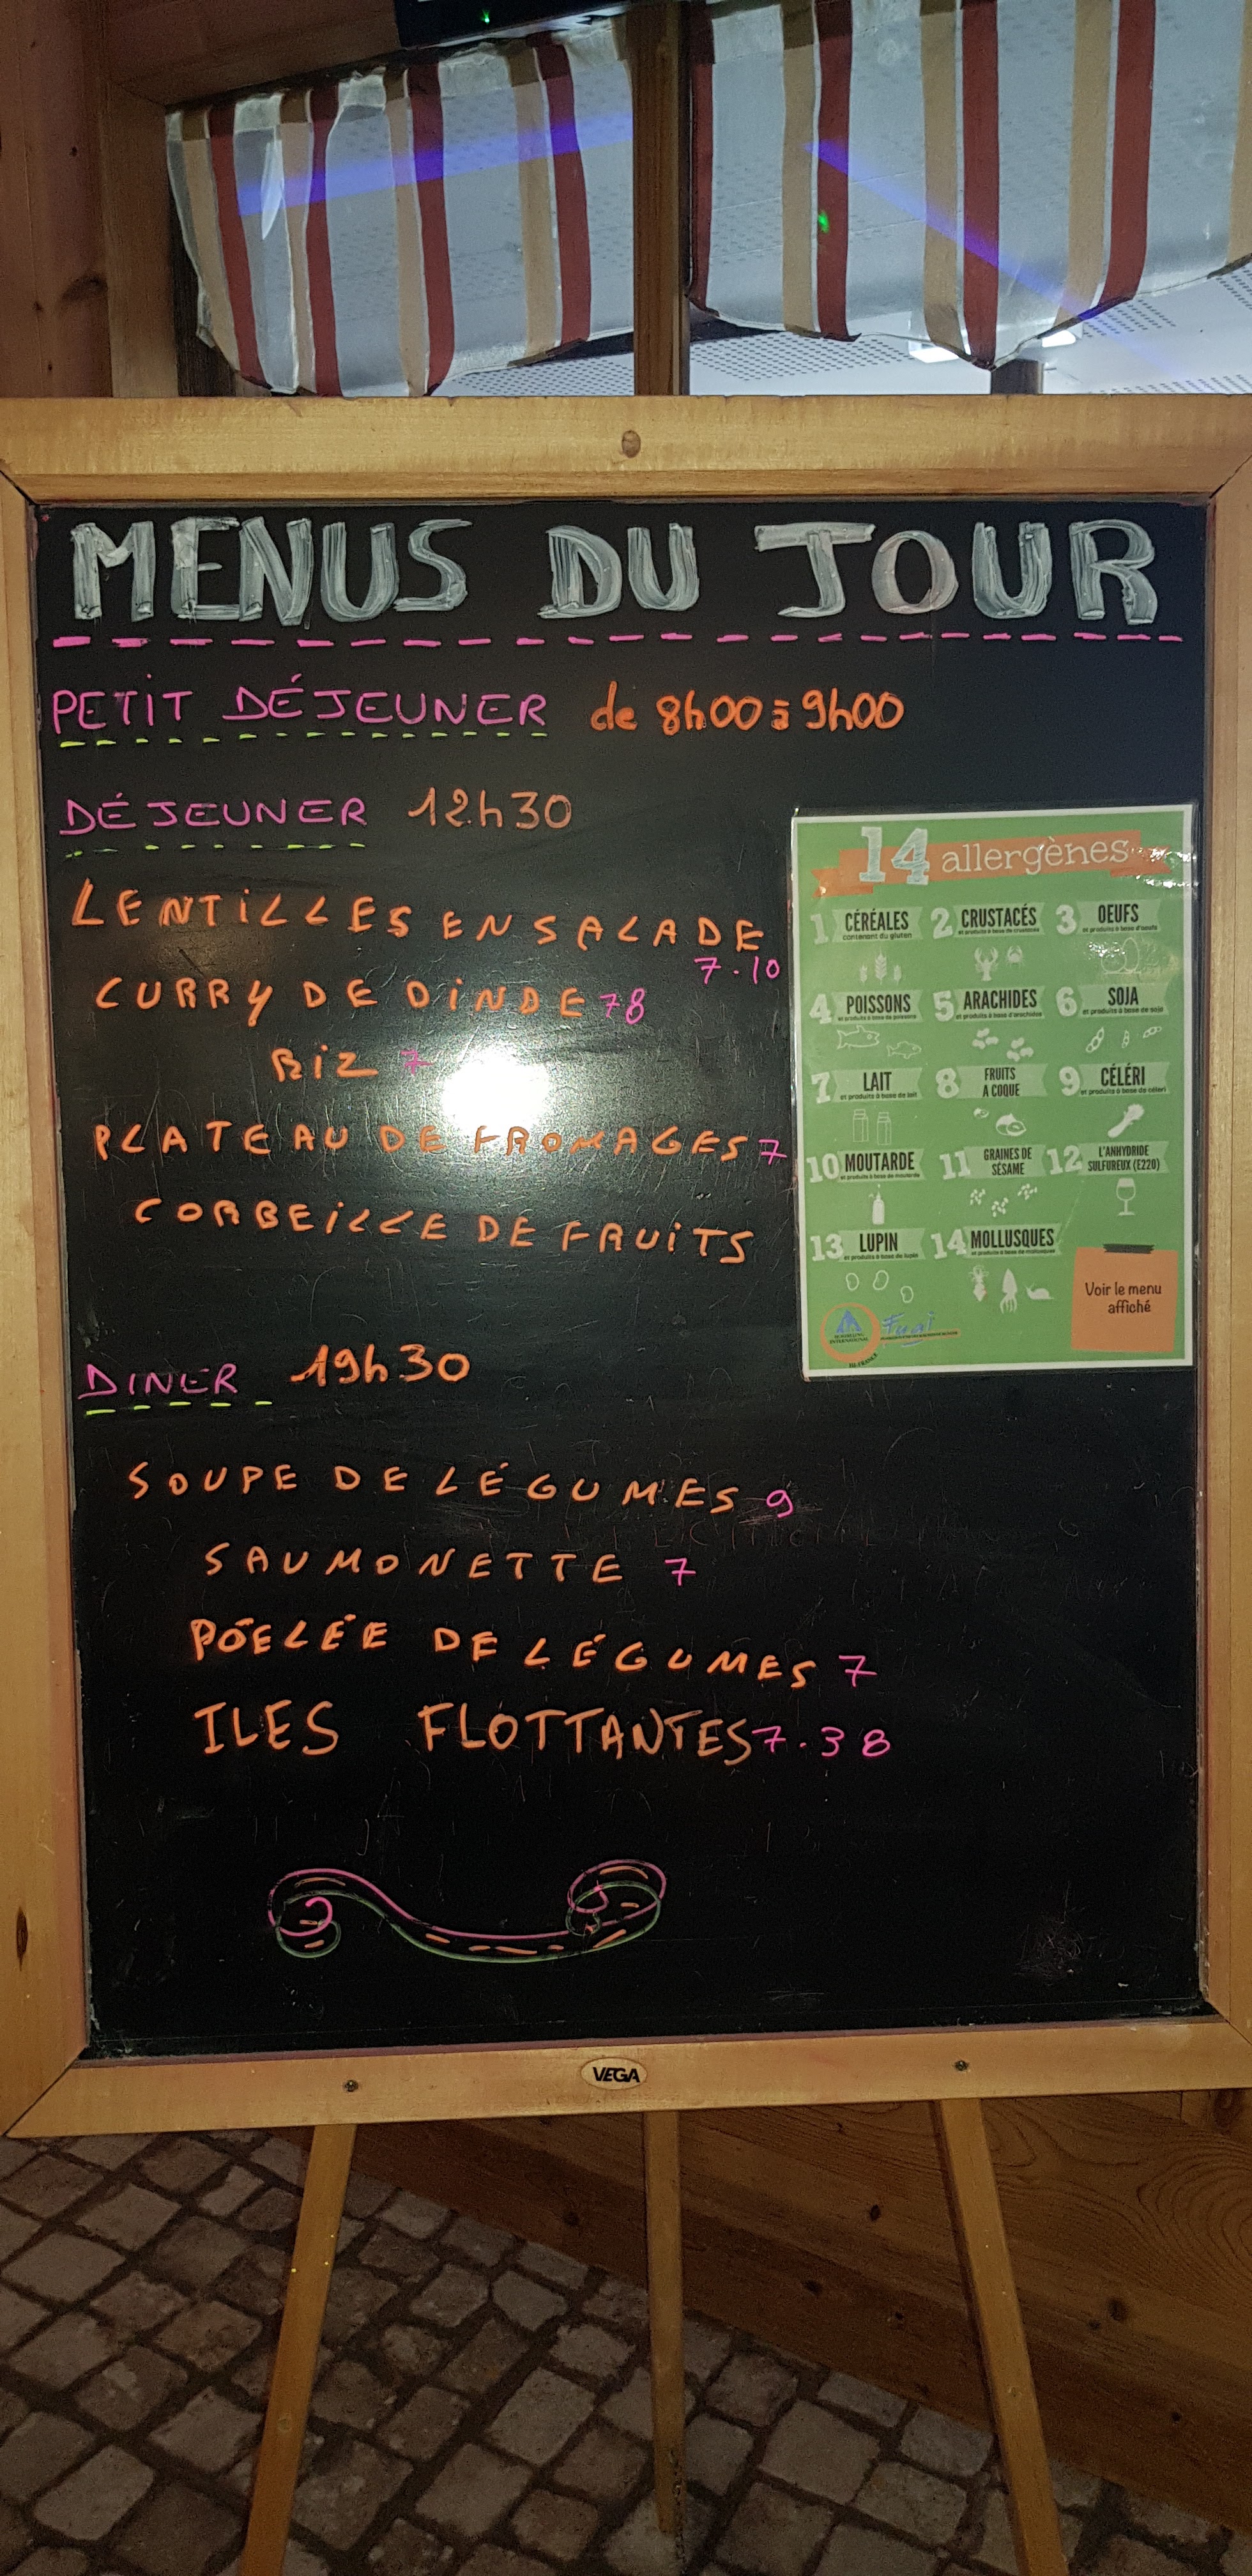 MENUS DU JOUR
PETIT DÉJEUNER de 8h00 à 9h00
DÉJEUNER 12h30
LENTILLES EN SALADE
7.10
CURRY DE DINDE 78
RIZ 7
PLATEAU DE FROMAGES 7
CORBEILLE DE FRUITS
DINER 19h30
SOUPE DE LÉGUMES 9
SAUMONETTE 7
PÖELÉE DE LÉGUMES 7
ILES FLOTTANTES 7.38
14 allergènes
1 CÉRÉALES 2 CRUSTACÉS 3 OEUFS
contenant du gluten et produits à base de crustacés et produits à base d'oeufs
4 POISSONS 5 ARACHIDES 6 SOJA
et produits à base de poissons et produits à base d'arachides et produits à base de soja
7 LAIT 8 FRUITS A COQUE 9 CÉLÉRI
et produits à base de lait et produits à base de céleri
10 MOUTARDE 11 GRAINES DE SÉSAME 12 L'ANHYDRIDE SULFUREUX (E220)
et produits à base de moutarde
13 LUPIN 14 MOLLUSQUES
et produits à base de lupin et produits à base de mollusques
Voir le menu
affiché
HOSTELLING
INTERNATIONAL
FRANCE
Fuaj
VEGA